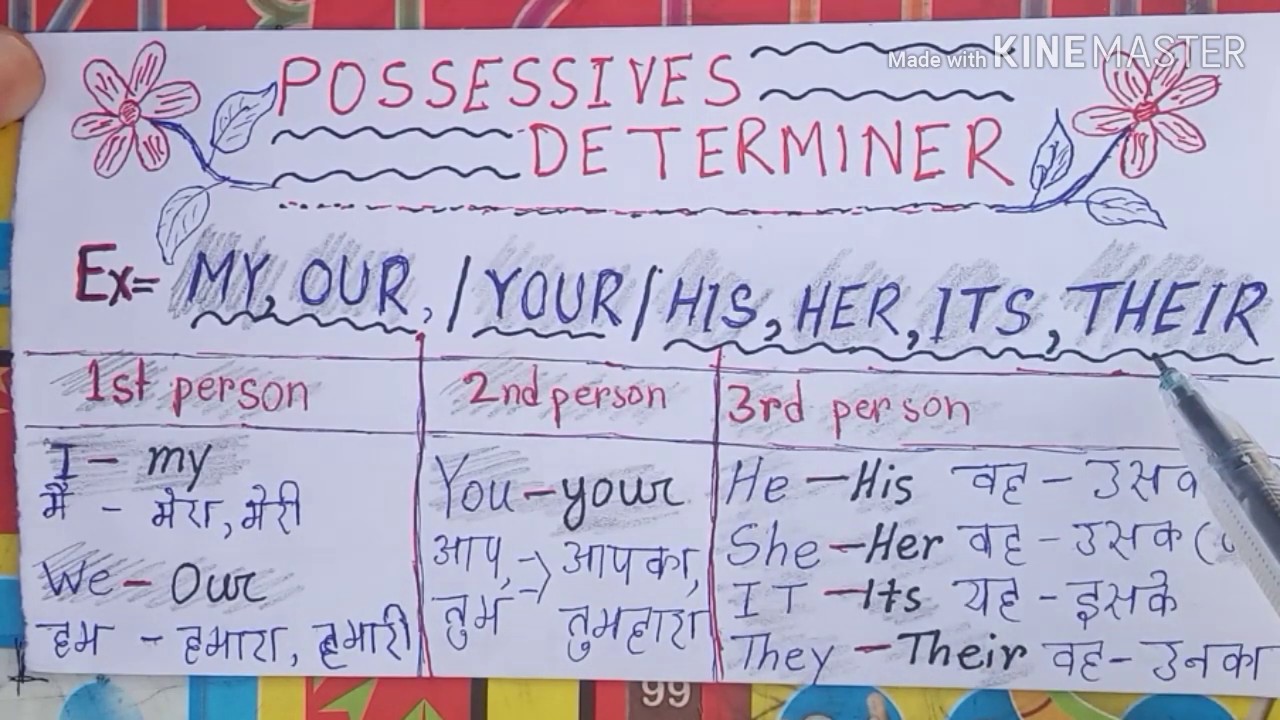 Made with KINEMASTER
POSSESSIVES
DETERMINER
Ex= MY, OUR, / YOUR / HIS, HER, ITS, THEIR
1st person
2nd person
3rd person
I - my
मैं - मेरा, मेरी
We - Our
हम - हमारा, हमारी
You - your
आप, -> आपका,
तुम तुमहारा
He - His वह -
She - Her वह -
IT - Its यह - इसके
They - Their वह - उनका
99